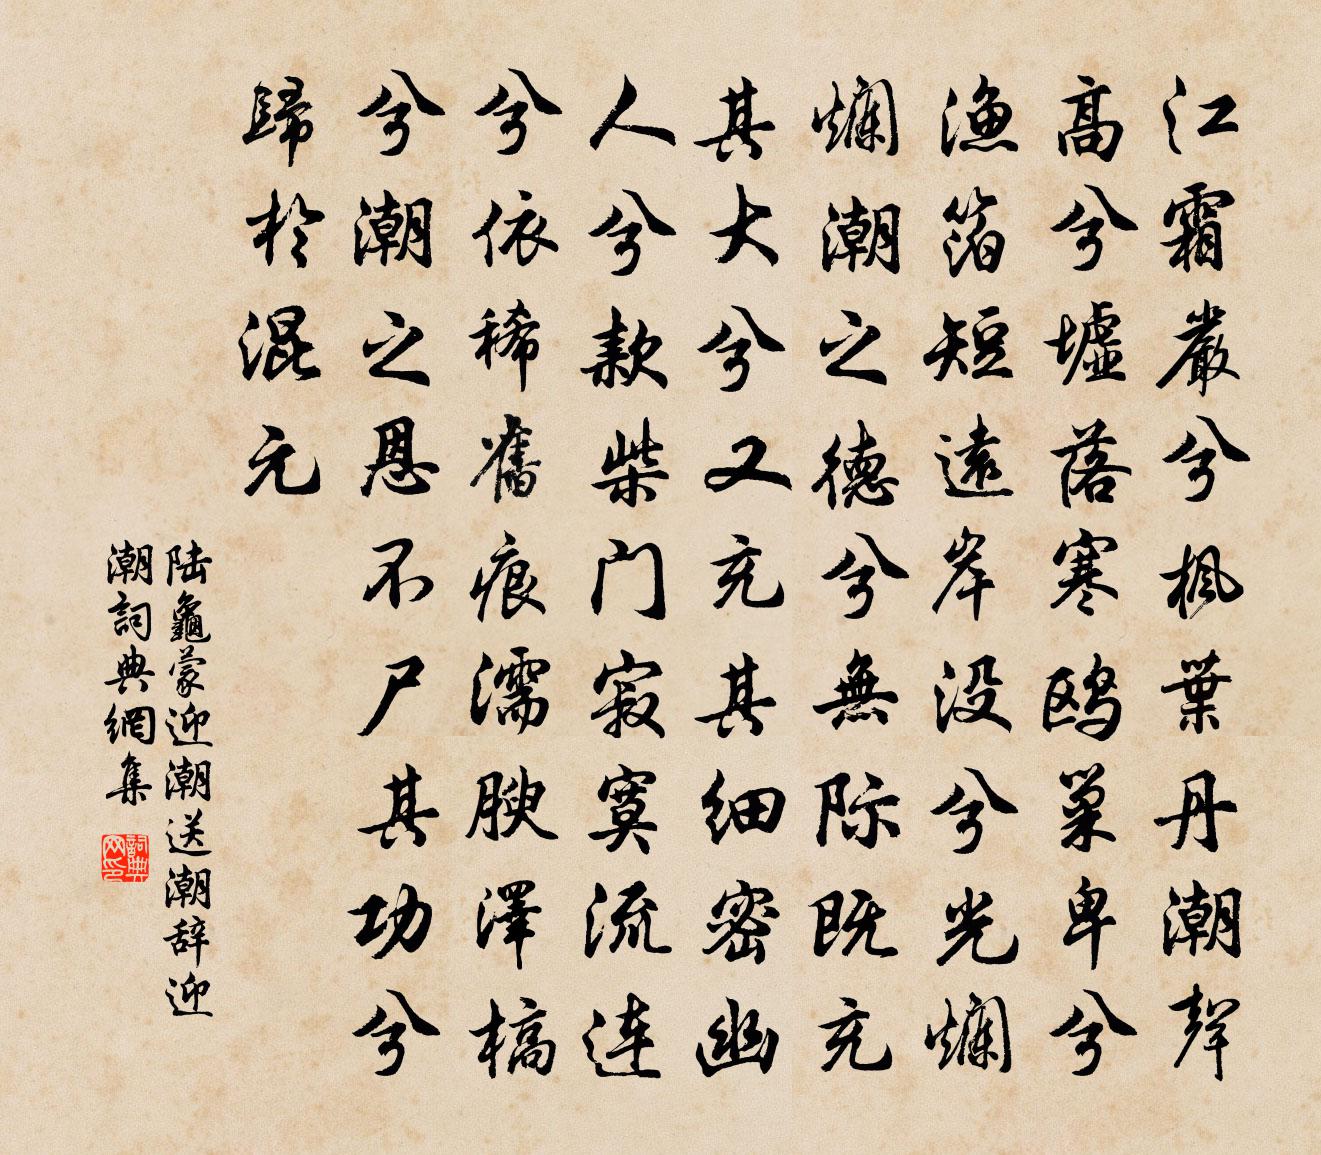 江霜嚴兮楓葉丹潮聲
高兮墟落寒鸥巢卑兮
漁箔短遠岸没兮光爛
爛潮之德兮無际既充
其大兮又充其细密幽
人兮款柴门寂寞流连
兮依稀舊痕濡腴澤槁
兮潮之恩不尸其功兮
歸於混元
陆龜蒙迎潮送潮辞迎
潮詞典網集
詞典网印